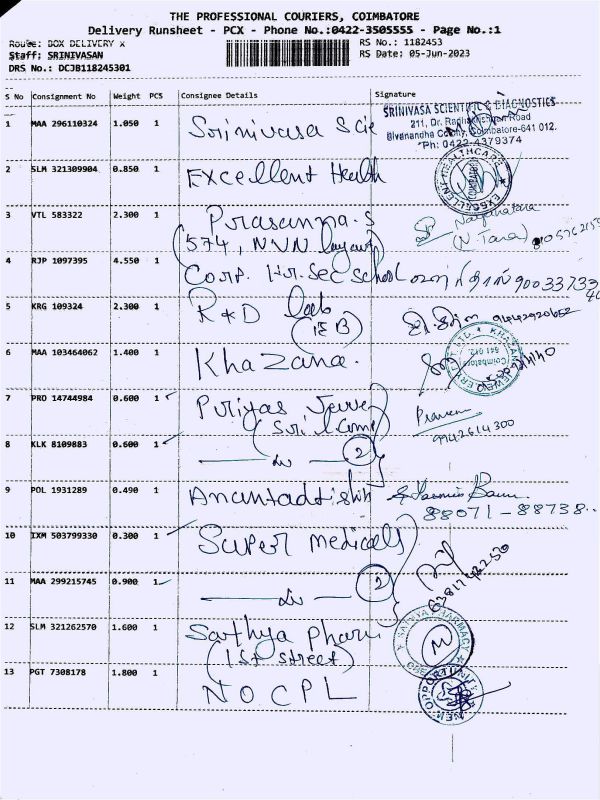 THE PROFESSIONAL COURIERS, COIMBATORE
Delivery Runsheet - PCX - Phone No.:0422-3505555 - Page No.:1
Route: BOX DELIVERY x
RS No.: 1182453
Staff: SRINIVASAN
RS Date: 05-Jun-2023
DRS No.: DCJB118245301
S No Consignment No Weight PCS Consignee Details Signature
SRINIVASA SCIENTIFIC & DIAGNOSTICS
211, Dr. Radhakrishnan Road
Sivanandha Colony, Coimbatore-641 012.
Ph: 0422-4379374
1 MAA 296110324 1.050 1 Srinivasa Scie
2 SLM 321309904 0.850 1 Excellent Health
EXCELLENT HEALTHCARE
3 VTL 583322 2.300 1 Prasanna.S
(574, NVN layout)
(N. Tara)
4 RJP 1097395 4.550 1 Corp. Hr. Sec School
5 KRG 109324 2.300 1 R&D lab
(IEB)
9442920652
6 MAA 103464062 1.400 1 Khazana.
Coimbatore
641 012.
7 PRO 14744984 0.600 1 Priyas Jewe
Praveen
9942614300
8 KLK 8109883 0.600 1 — do — 2
9 POL 1931289 0.490 1
88071-88738
10 IXM 503799330 0.300 1 Super Medicals
11 MAA 299215745 0.900 1 — do — 2
12 SLM 321262570 1.600 1 Sathya Pharm
(1st street)
SATHYA PHARMACY
13 PGT 7308178 1.800 1 NOCPL
NEW OPPORTUNITY